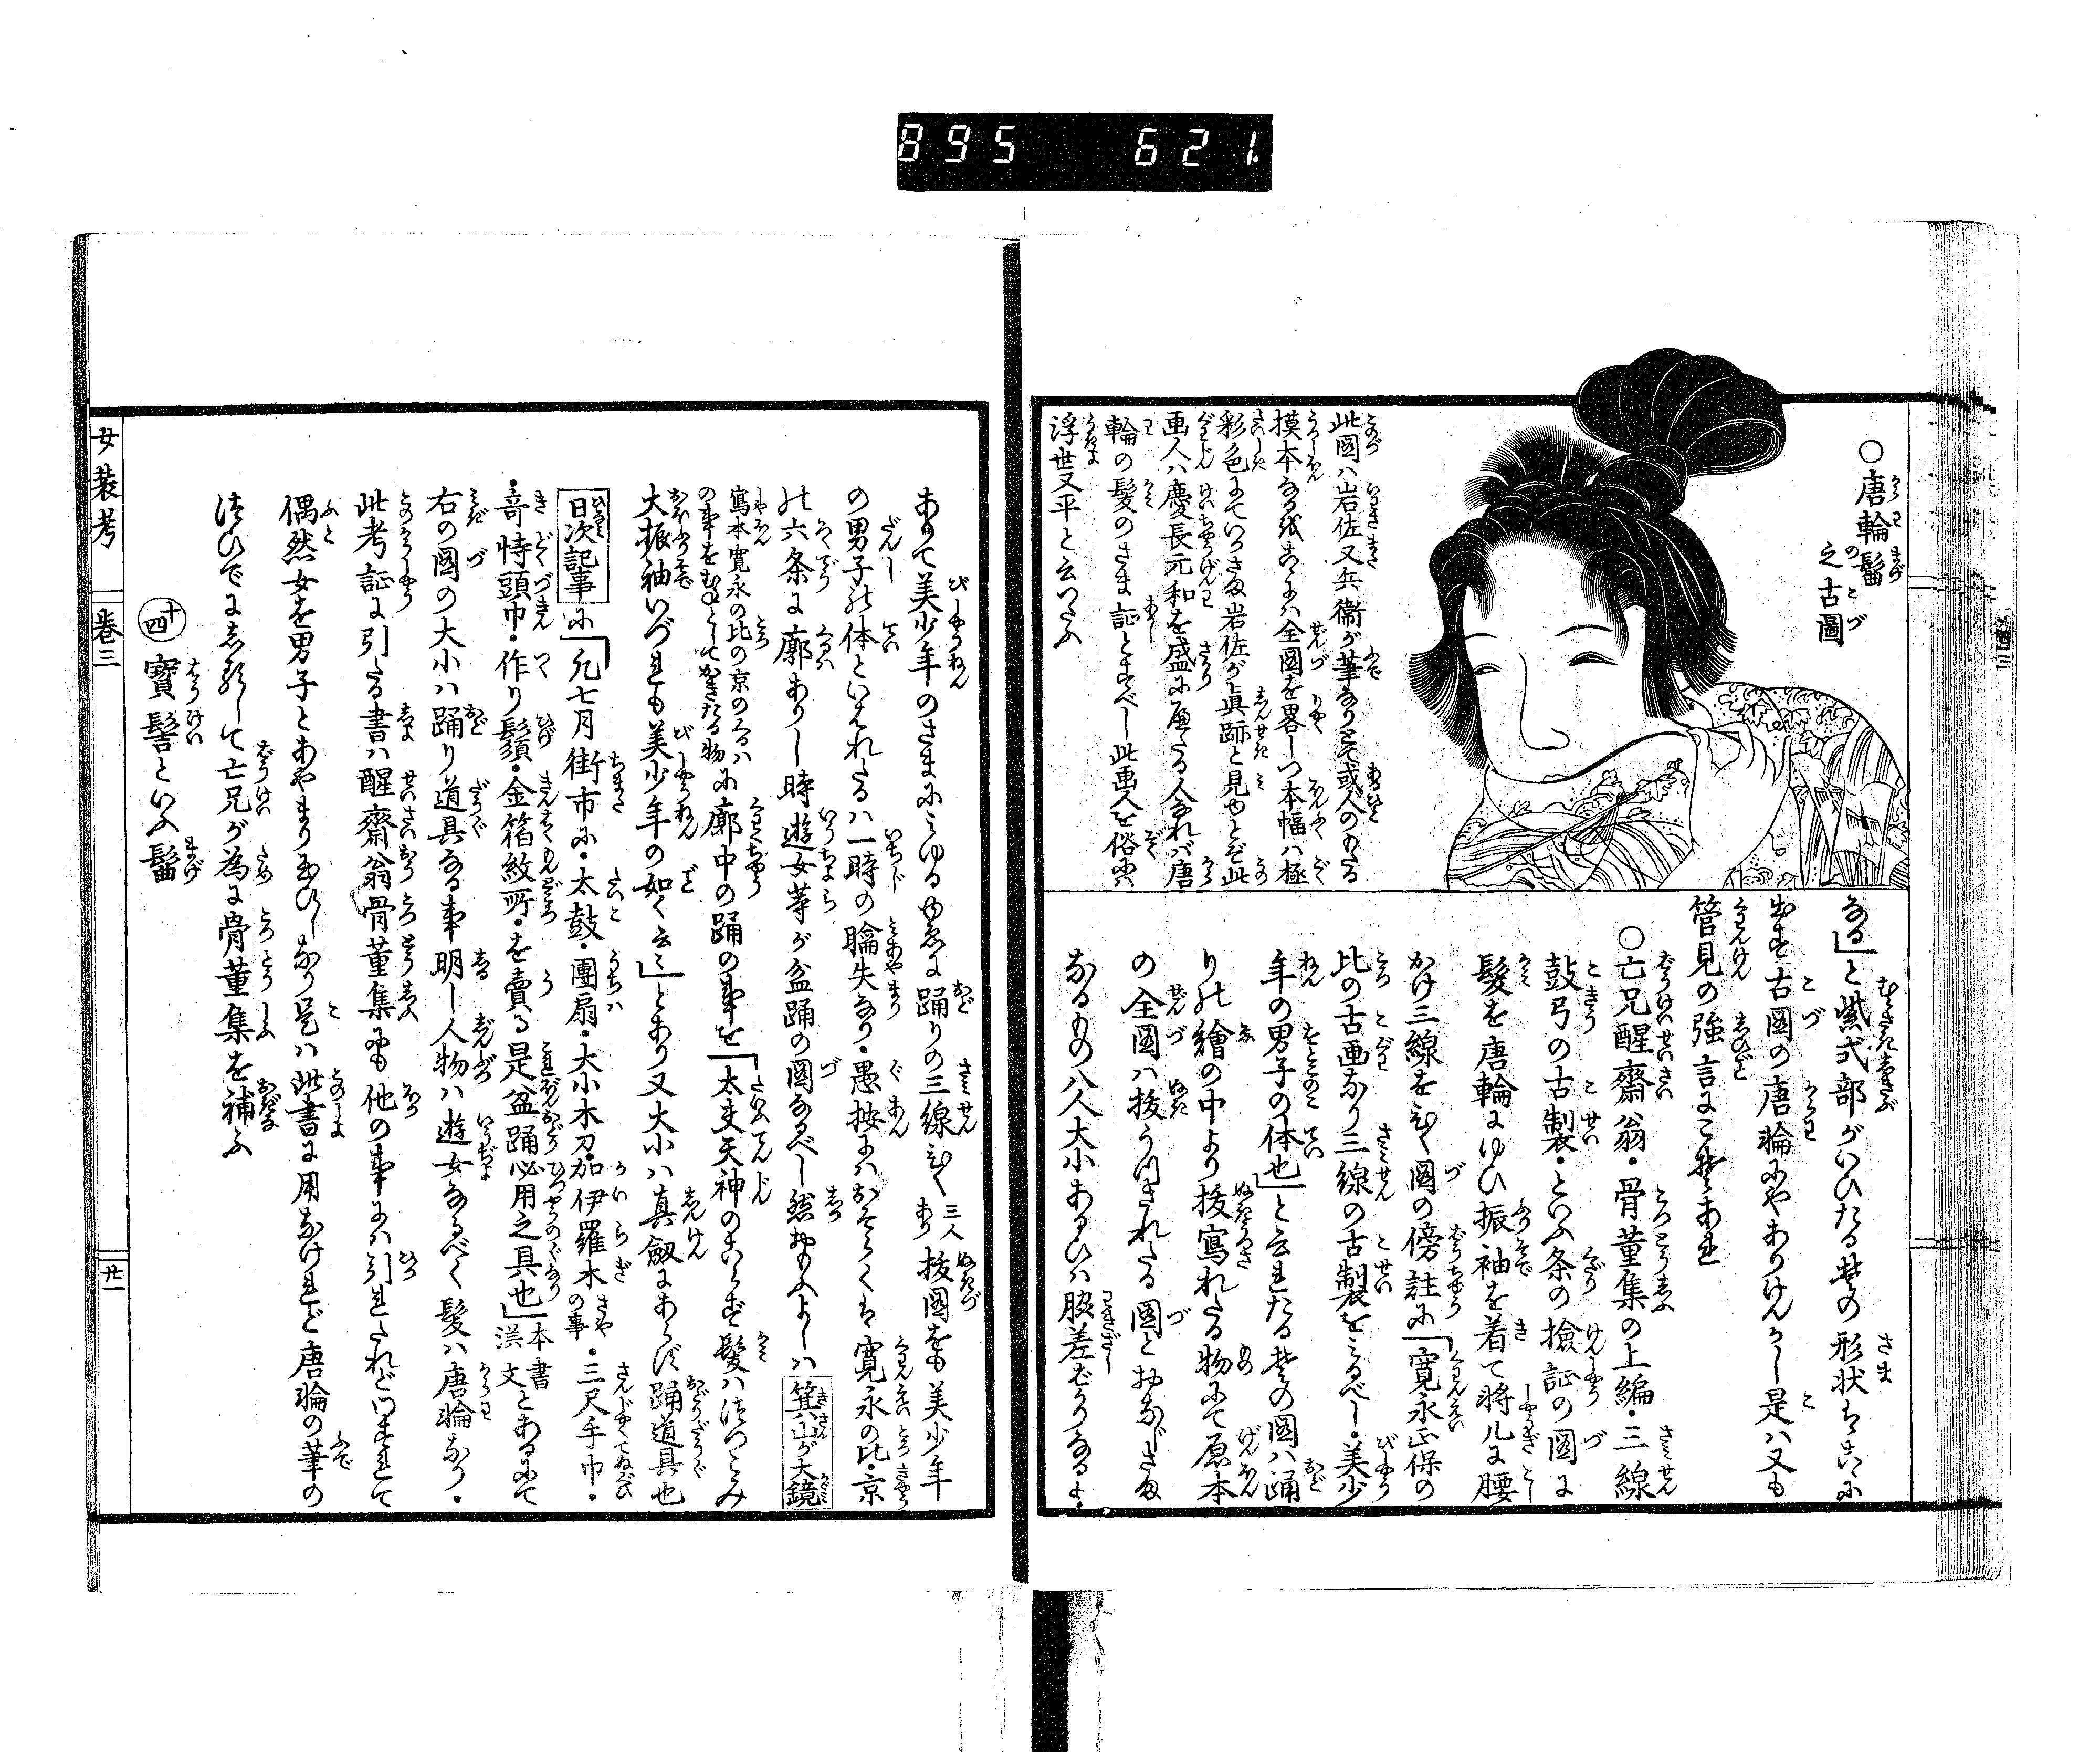 895 621
○唐輪髷
之古圖
此圖ハ岩佐又兵衞が筆なりとて或人のもたる
摸本なる故こゝにハ全圖を畧しつ本幅ハ極
彩色にていつさま岩佐が眞跡と見ゆとぞ此
画人ハ慶長元和を盛にへたる人なれバ唐
輪の髮のさま証とすべし此画人を俗に
浮世又平と云つたふ
なる」と紫式部がいひたる髻の形状はこゝに
出す古圖の唐輪にやありけんかし是ハ又も
管見の強言にこそあれ
○亡兄醒齋翁・骨董集の上編・三線
鼓弓の古製・といふ条の撿証の圖に
髮を唐輪にゆひ振袖を着て将几に腰
かけ三線をひく圖の傍註に「寛永正保の
比の古画なり三線の古製をみるべし・美少
年の男子の体也」と云れたる其の圖ハ踊
りの繪の中より抜寫れたる物にて原本
の全圖ハ抜うつされたる圖とおなじさま
なるもの八人大小あるひハ脇差ばかりなるよ・
ありて美少年のさまにみゆるゆゑに踊りの三線ひく三人あり抜圖をも美少年
の男子の体といはれたるハ一時の瞼失なり・愚按にハおそらくは寛永の比・京
の六条に廓ありし時遊女等が盆踊の圖なるべし然おもふよしハ箕山が大鏡
寫本寛永の比の京のくるハの事をむねとしてかきたる物に廓中の踊の事を「太夫天神のこらず髮ハ法つこみ
大振袖いづれも美少年の如く云々」とあり又大小ハ真劔にあらず踊道具也
日次記事に「凡七月街市に・太鼓・團扇・大小木刀・加伊羅木さやの事・三尺手巾・
・竒特頭巾・作り鬚・金箔紋所・を賣る是盆踊必用之具也」本書漢文とあるにて
右の圖の大小ハ踊り道具なる事明し人物ハ遊女なるべく髮ハ唐輪なり・
此考証に引たる書ハ醒齋翁骨董集にも他の事にハ引れたれどいまれて
偶然女を男子とあやまり玉ひしなり是ハ此書に用なけれど唐輪の筆の
法ひでにしるして亡兄が為に骨董集を補ふ
十四 寳髻といふ髷
女装考 巻三 廿一